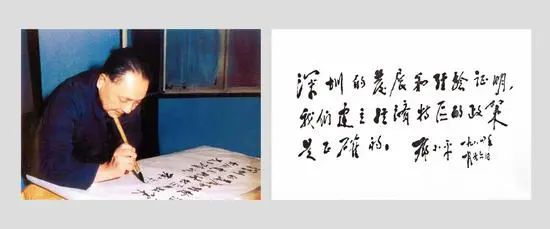 深圳的发展和经验证明,
我们建立经济特区的政策
是正确的。 邓小平 一九八四年
一月廿六日